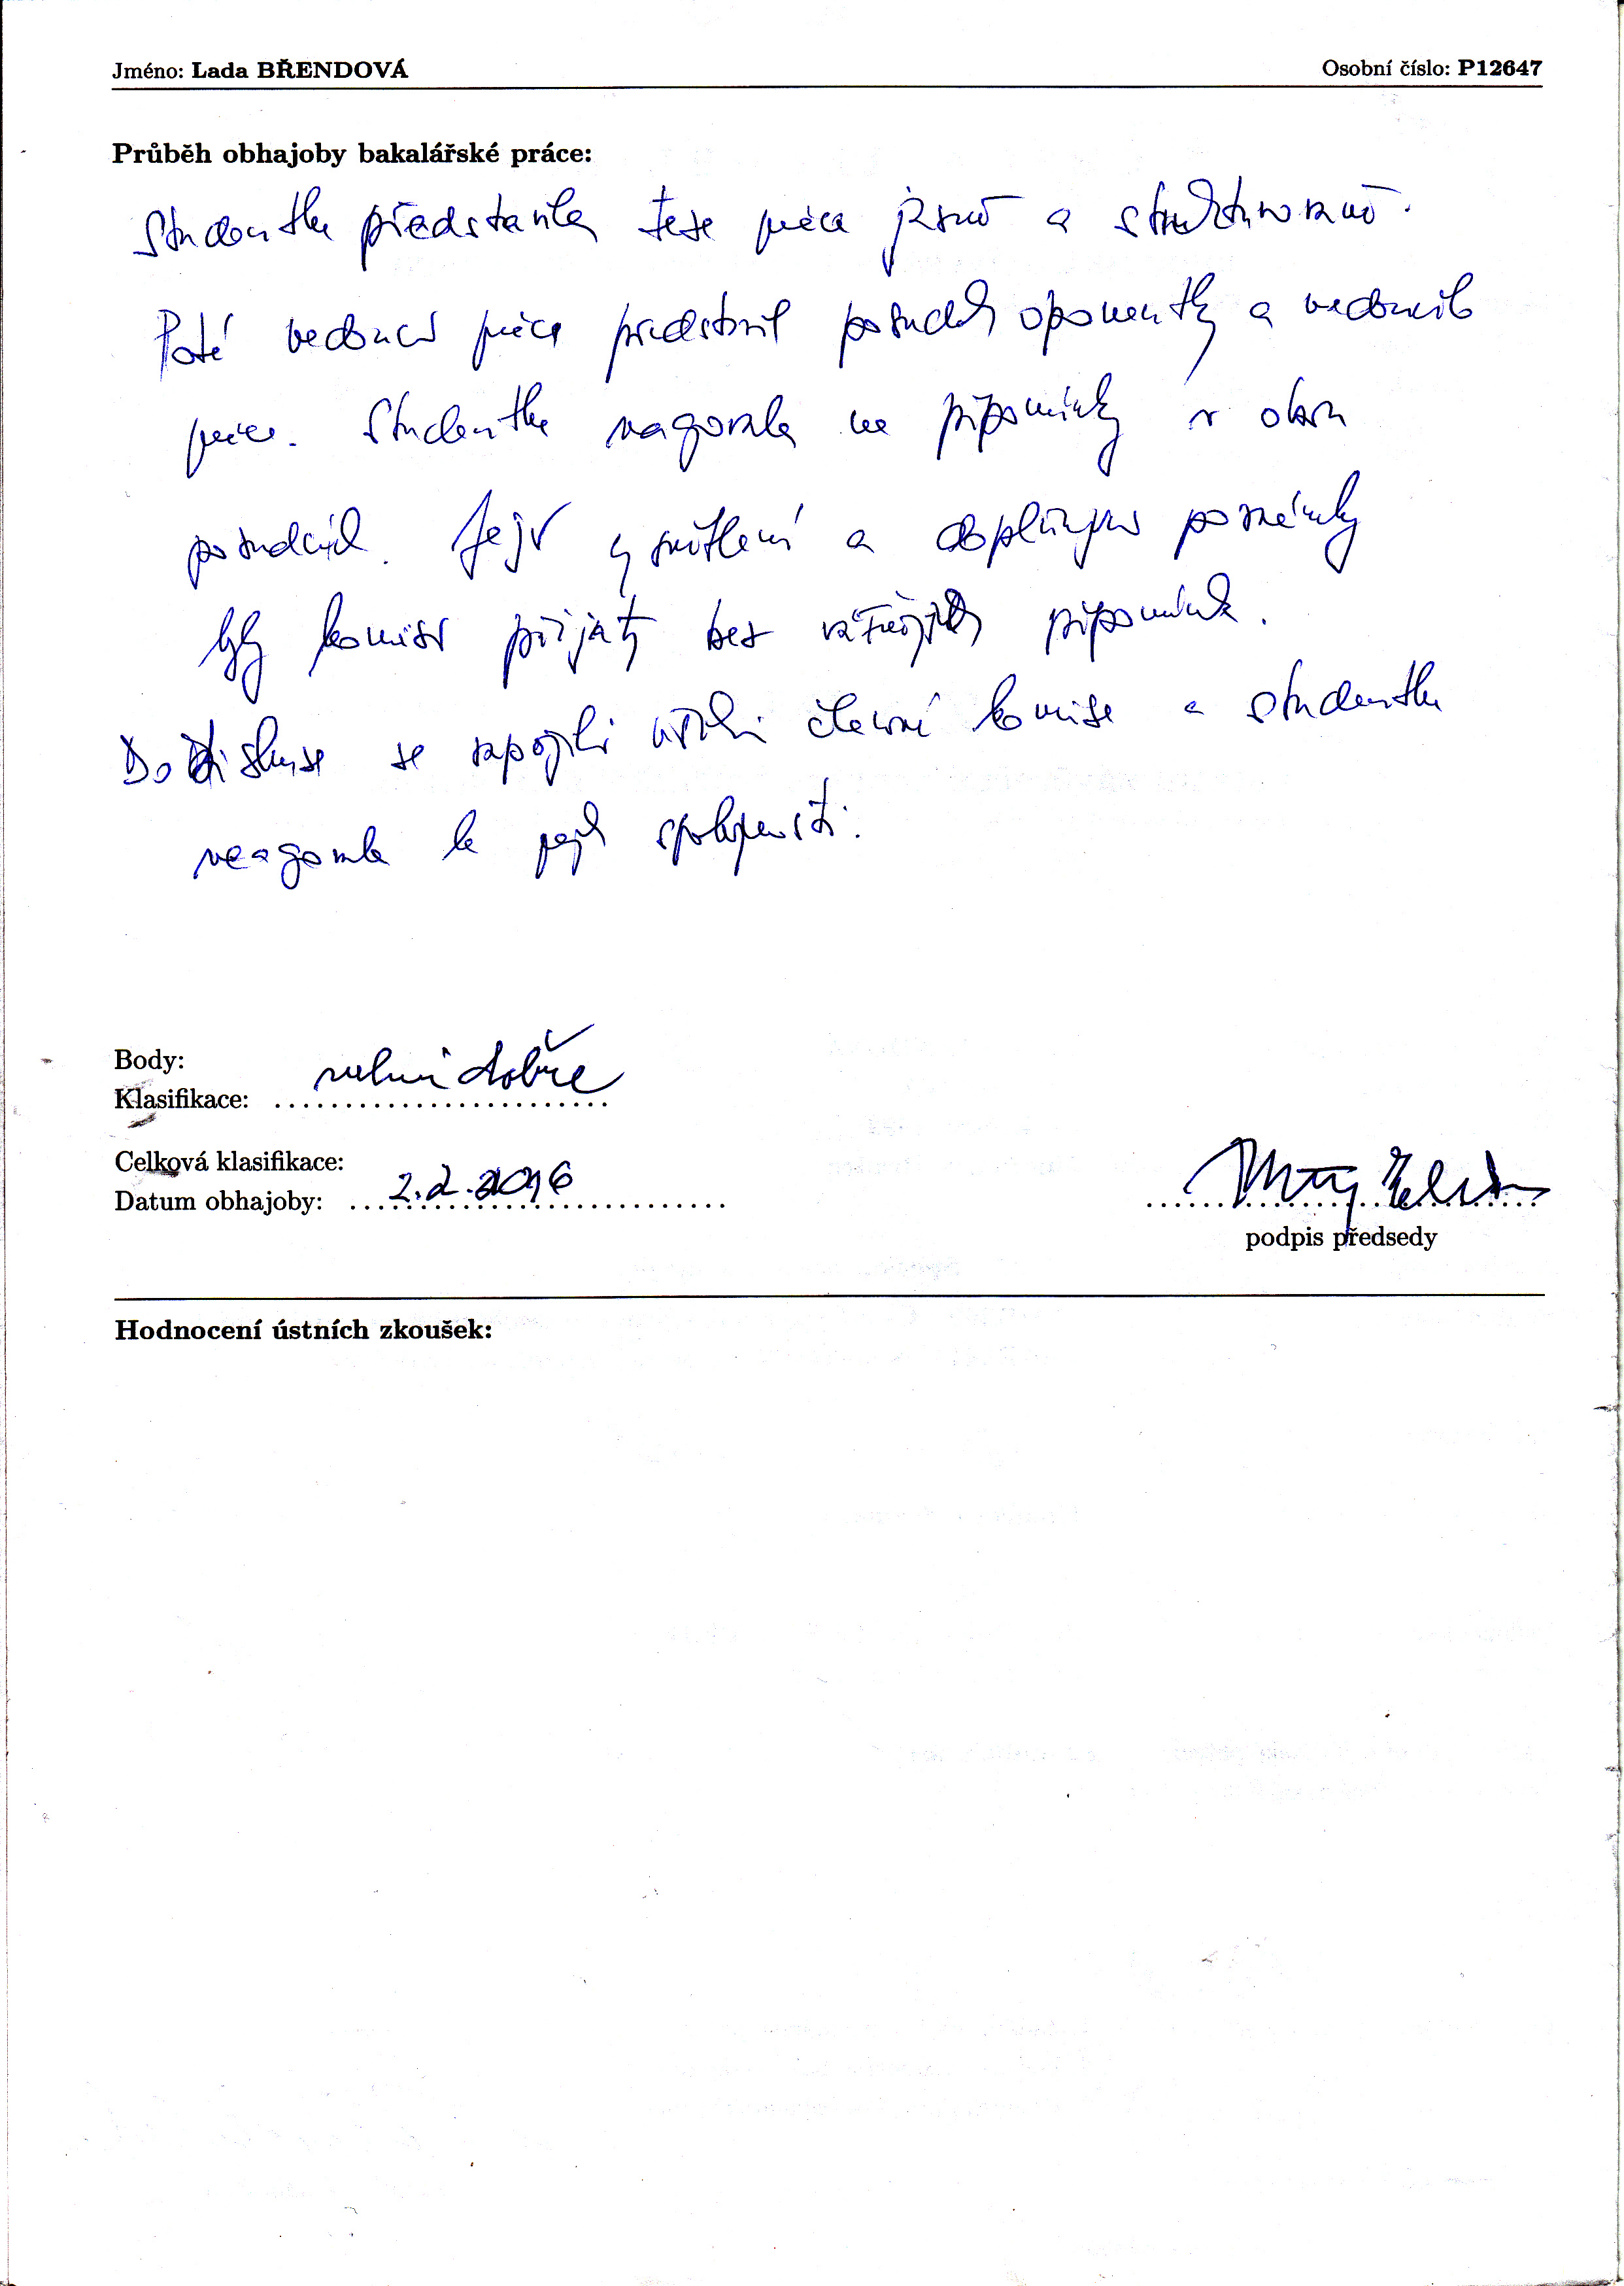 Jméno: Lada BŘENDOVÁ Osobní číslo: P12647
Průběh obhajoby bakalářské práce:
Studentka představila teze práce jasně a strukturovaně.
Poté vedoucí práce představil posudek oponentky a vedoucího
práce. Studentka reagovala na připomínky v obou
posudcích. Její vysvětlení a doplňující poznámky
byly komisí přijaty bez vážnějších připomínek.
Do diskuse se zapojili všichni členové komise a studentka
reagovala k jejich spokojenosti.
Body:
velmi dobře
Klasifikace:
Celková klasifikace:
Datum obhajoby: 2.2.2016
podpis předsedy
Hodnocení ústních zkoušek: